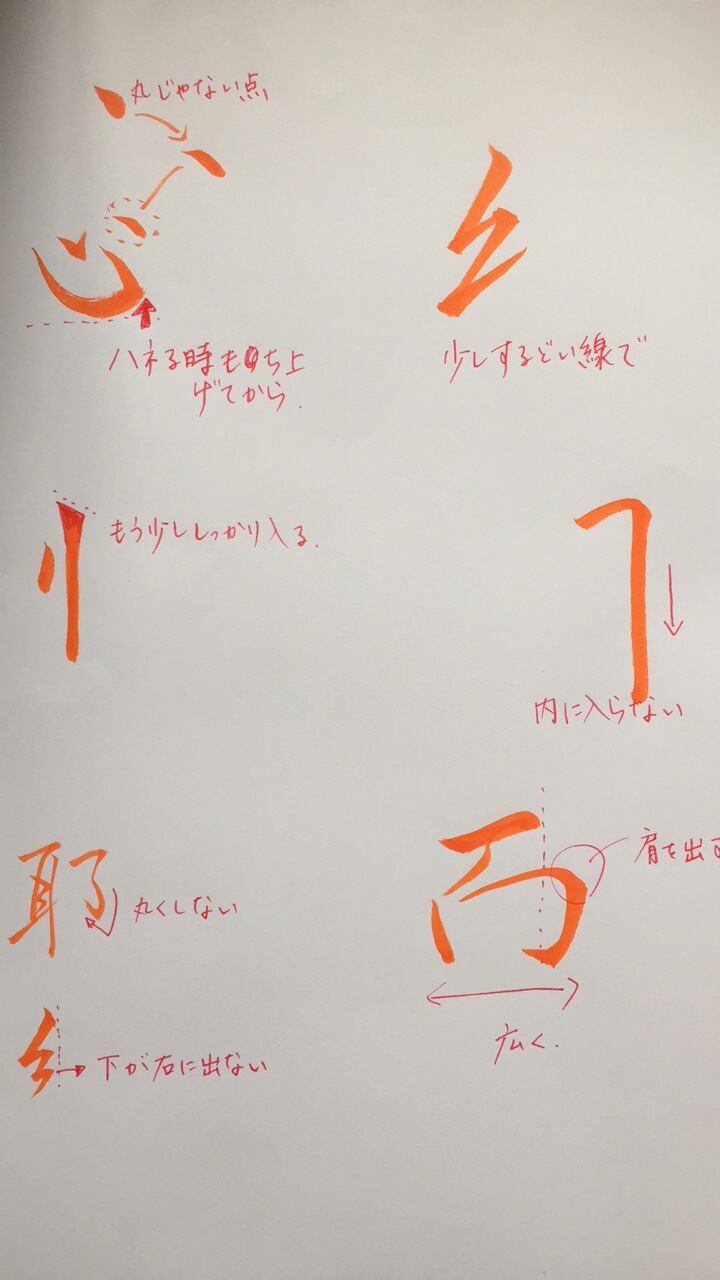 丸じゃない点
心
ハネる時も持ち上
げてから.
少しするどい線で
もう少ししっかり入る.
内に入らない
耶
丸くしない
肩を出す
広く.
下が右に出ない